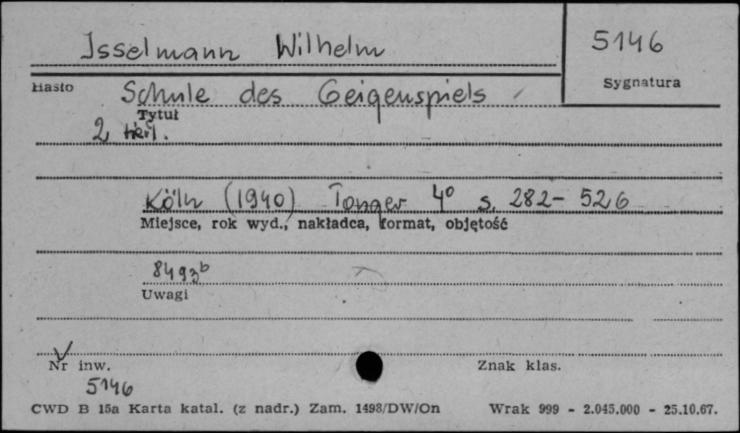 Isselmann Wilhelm
5146
Hasło
Sygnatura
Schule des Geigenspiels
Tytuł
2 teil.
Köln (1940) Tonger 4° s. 282-526
Miejsce, rok wyd., nakładca, format, objętość
8493b
Uwagi
Nr inw.
Znak klas.
5146
CWD B 15a Karta katal. (z nadr.) Zam. 1493/DW/On
Wrak 999 - 2.045.000 - 25.10.67.